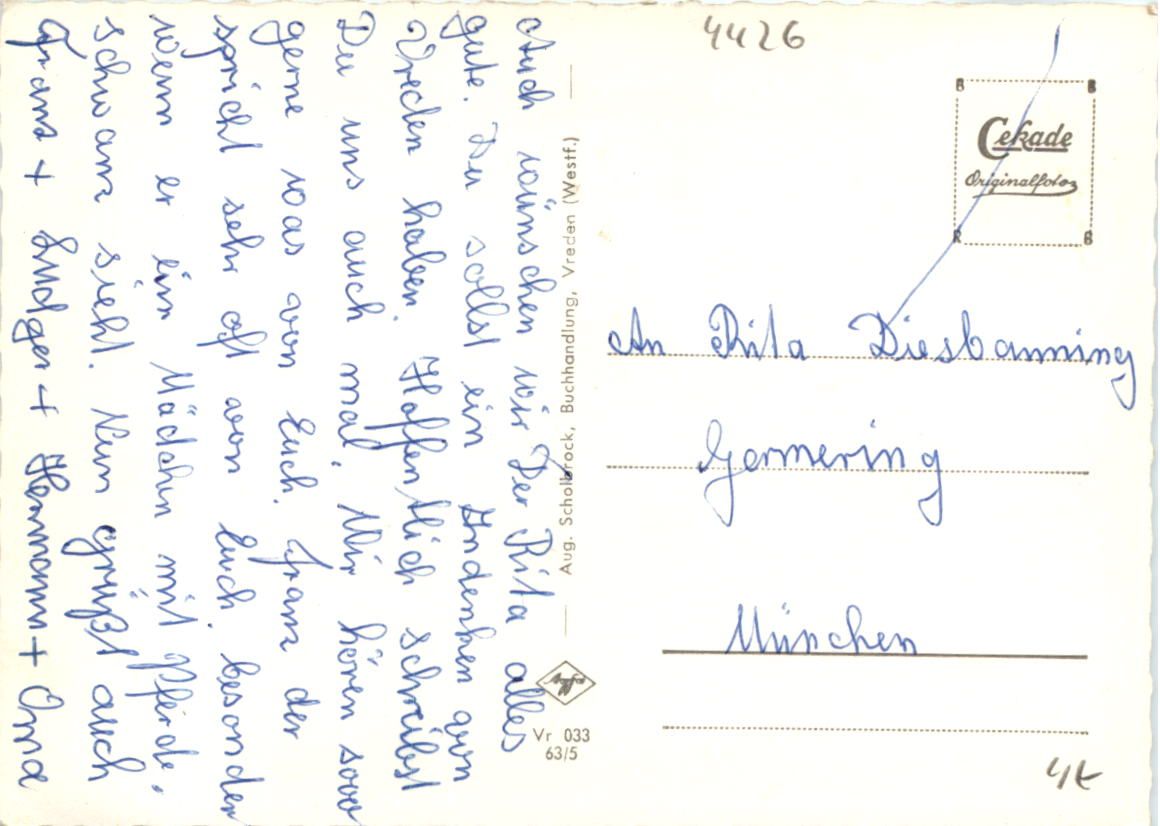 Auch wünschen wir Der Rita alles
gute. Du sollst ein Indenken von
Vreden haben. Hoffentlich schreibst
Du uns auch mal. Wir hören sooo
gerne was von Euch. Franz der
spricht sehr oft von Euch. besonder
wenn er ein Mädchen mit Pferde,
schwanz sieht. Nun grüßt auch
Franz + Ludger + Hermann + Oma
Aug. Scholbrock, Buchhandlung, Vreden (Westf.)
Agfa
Vr 033
63/5
4426
B B
Cekade
Originalfotos
R B
An Rita Diesbanning
Germering
München